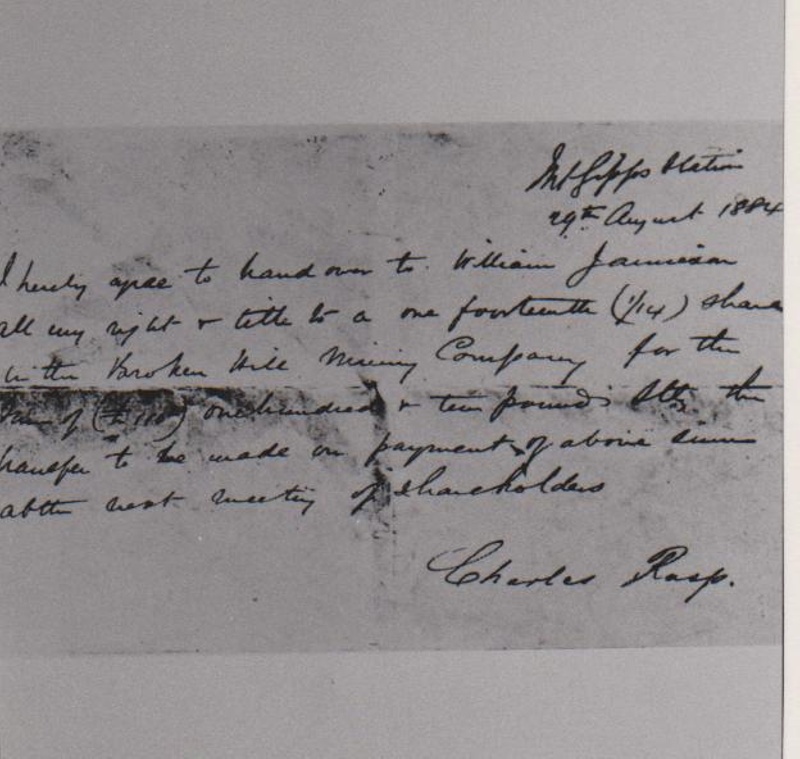 Mt Gipps Station
29th August 1884
I hereby agree to hand over to William Jamieson
all my right & title to a one fourteenth (1/14) share
in the Broken Hill Mining Company for the
sum of (£110) one hundred & ten pounds Stg the
transfer to be made on payment of above sum
at the next meeting of shareholders
Charles Rasp.